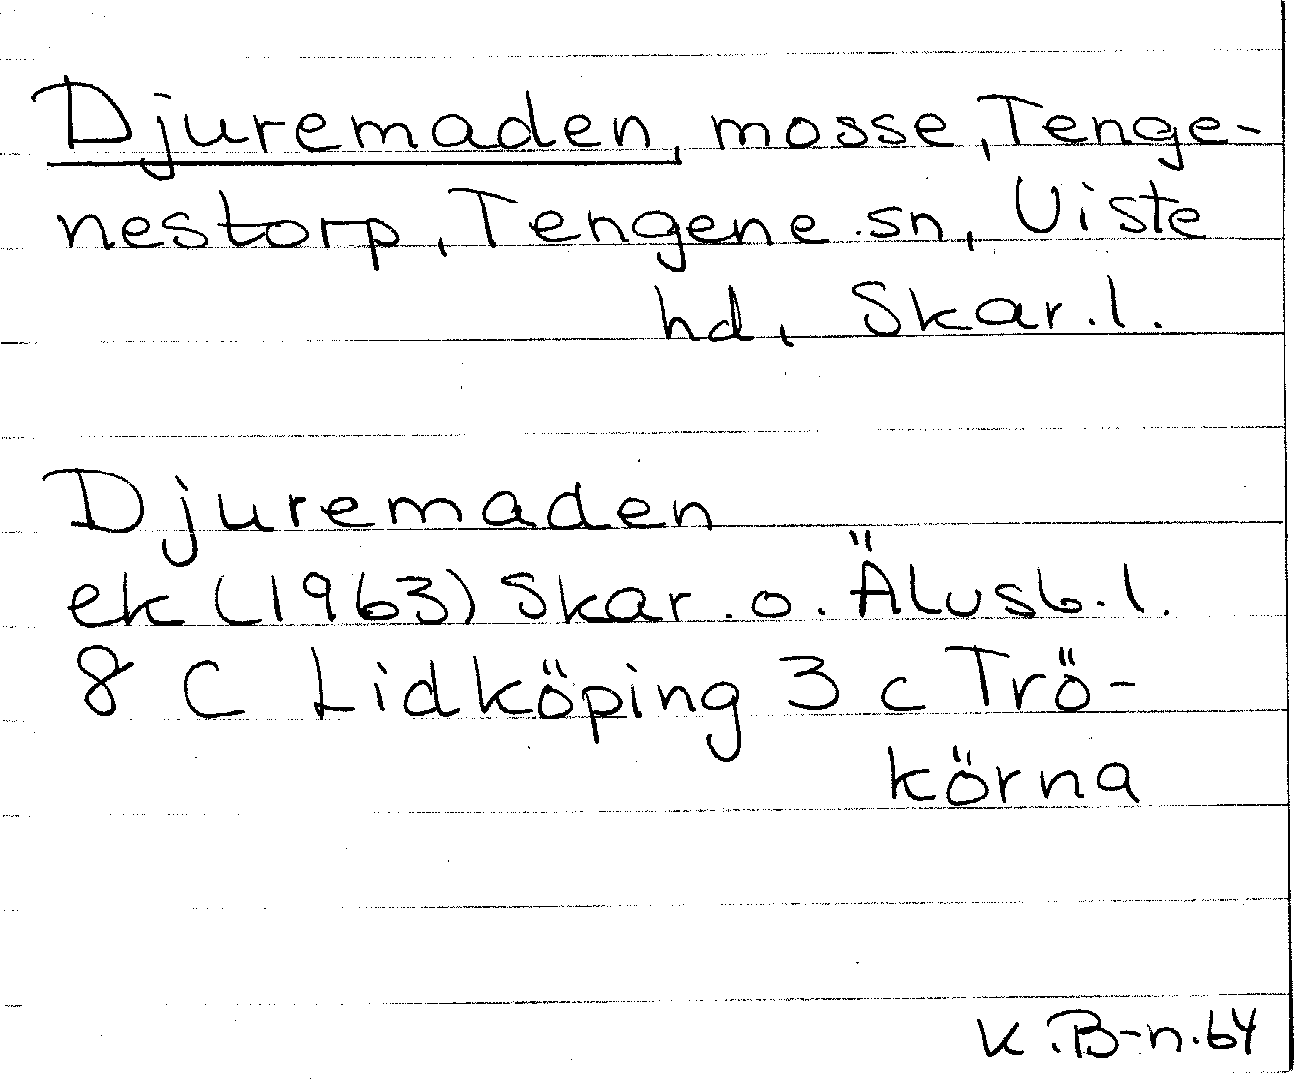 Djuremaden, mosse, Tenge-
nestorp, Tengene sn, Viste
hd, Skar.l.
Djuremaden
ek (1963) Skar. o. Älvsb.l.
8 C Lidköping 3 c Trö-
körna
K.B-n.64